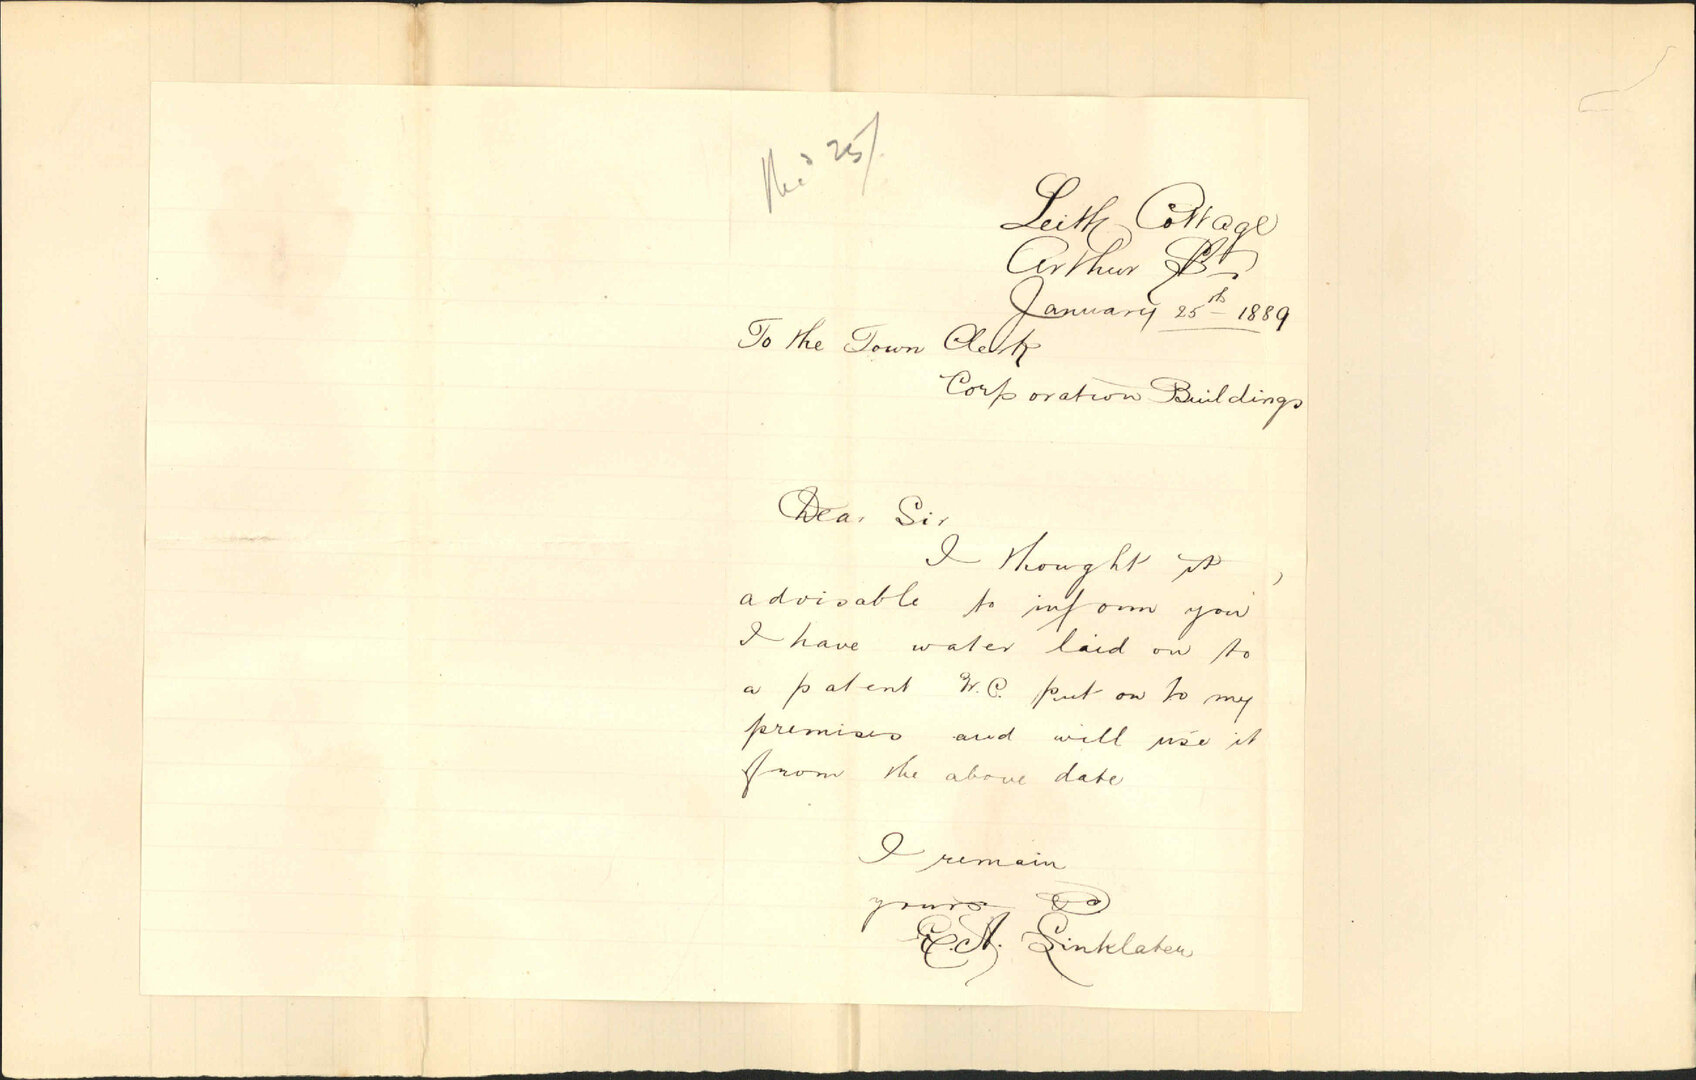 Rec'd 25/.
Leith Cottage
Arthur St
January 25th 1889
To the Town Clerk
Corporation Buildings
Dear Sir
I thought it
advisable to inform you
I have water laid on to
a patent W.C. put on to my
premises and will use it
from the above date
I remain
yours &c
A. Linklater